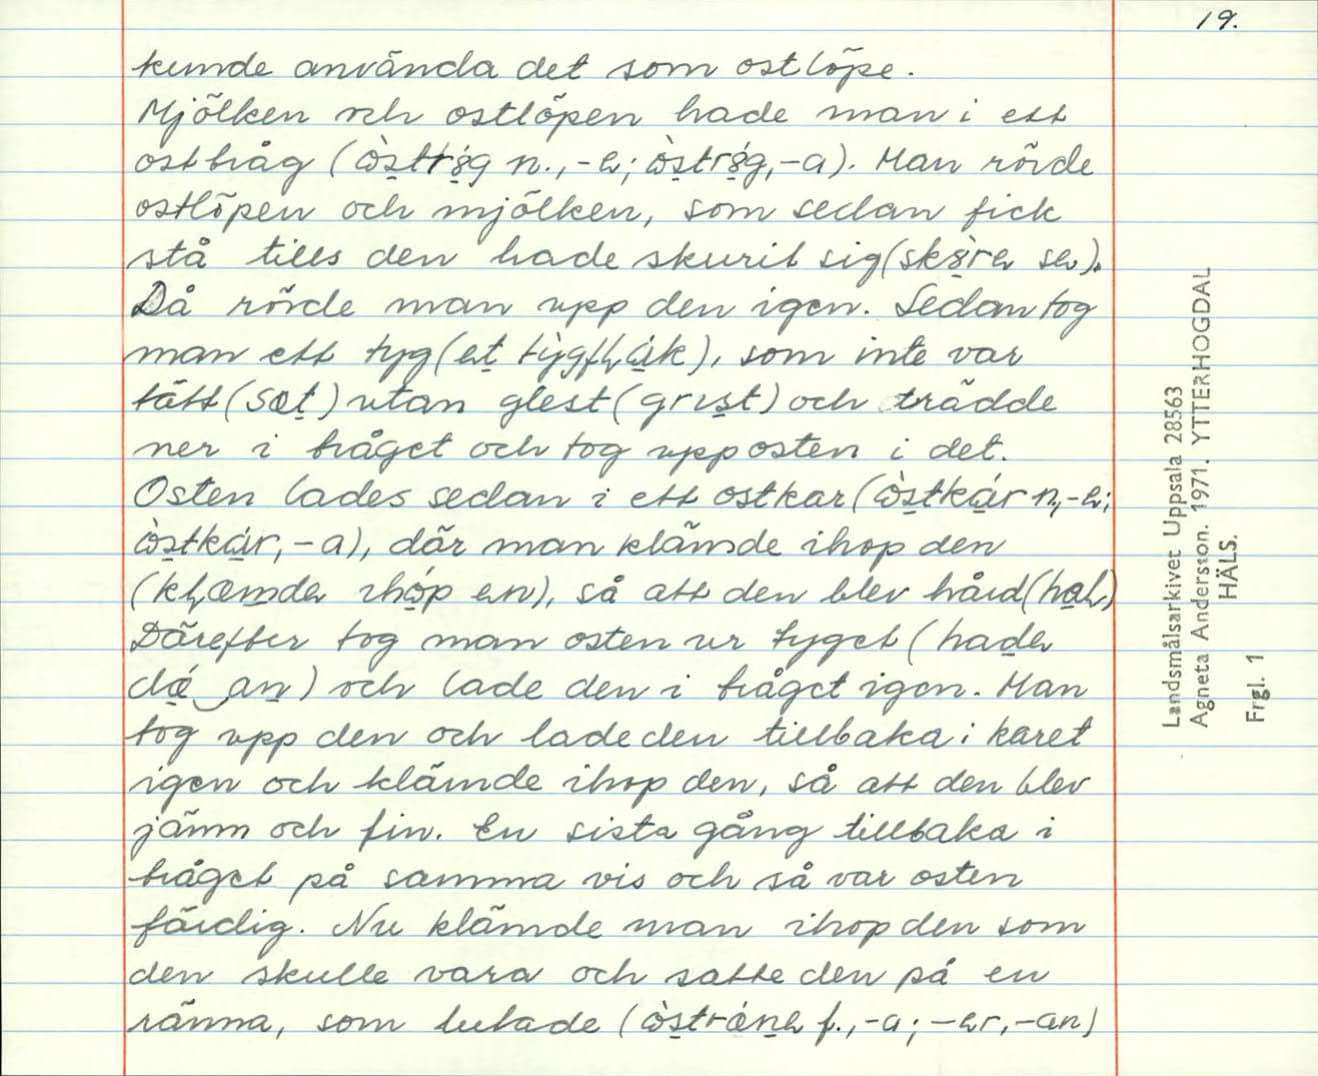 19.
kunde använda det som ostlöpe.
Mjölken och ostlöpen hade man i ett
ostbråg (n., Man rörde
ostlöpen och mjölken, som sedan fick
stå tills den hade skurit sig
Då rörde man upp den igen. Sedan tog
man ett tyg, som inte var
tätt (sæt) utan glest (grıst) och trädde
ner i tråget och tog upp osten i det.
Osten lades sedan i ett ostkar (òstkár n.,
òstkár, -a), där man klämde ihop den
så att den blev hård
Därefter tog man osten ur tyget
och lade den i tråget igen. Man
tog upp den och lade den tillbaka i karet
igen och klämde ihop den, så att den blev
jämn och fin. En sista gång tillbaka i
tråget på samma vis och så var osten
färdig. Nu klämde man ihop den som
den skulle vara och satte den på en
ränna, som lutade
Landsmålsarkivet Uppsala 28563
Agneta Anderston. 1971. YTTERHOGDAL
HÄLS.
Frgl. 1